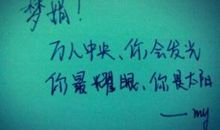 梦娟！
万人中央、你会发光
你最耀眼、你是太阳
——my